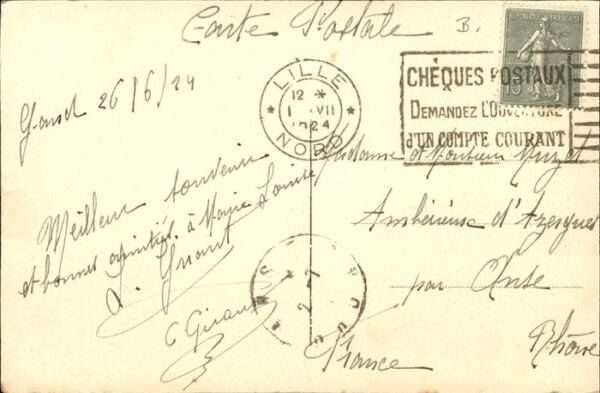 Carte Postale
B.
RÉPUBLIQUE FRANÇAISE
15
LILLE
12 *
1 VII
1924
NORD
CHÈQUES POSTAUX
DEMANDEZ L'OUVERTURE
D'UN COMPTE COURANT
Gand 26/6/24
Meilleur souvenir
et bonnes amitiés à Marie Louise
Madame et Monsieur
Ambérieux d'Azergues
par Anse
Rhône
France